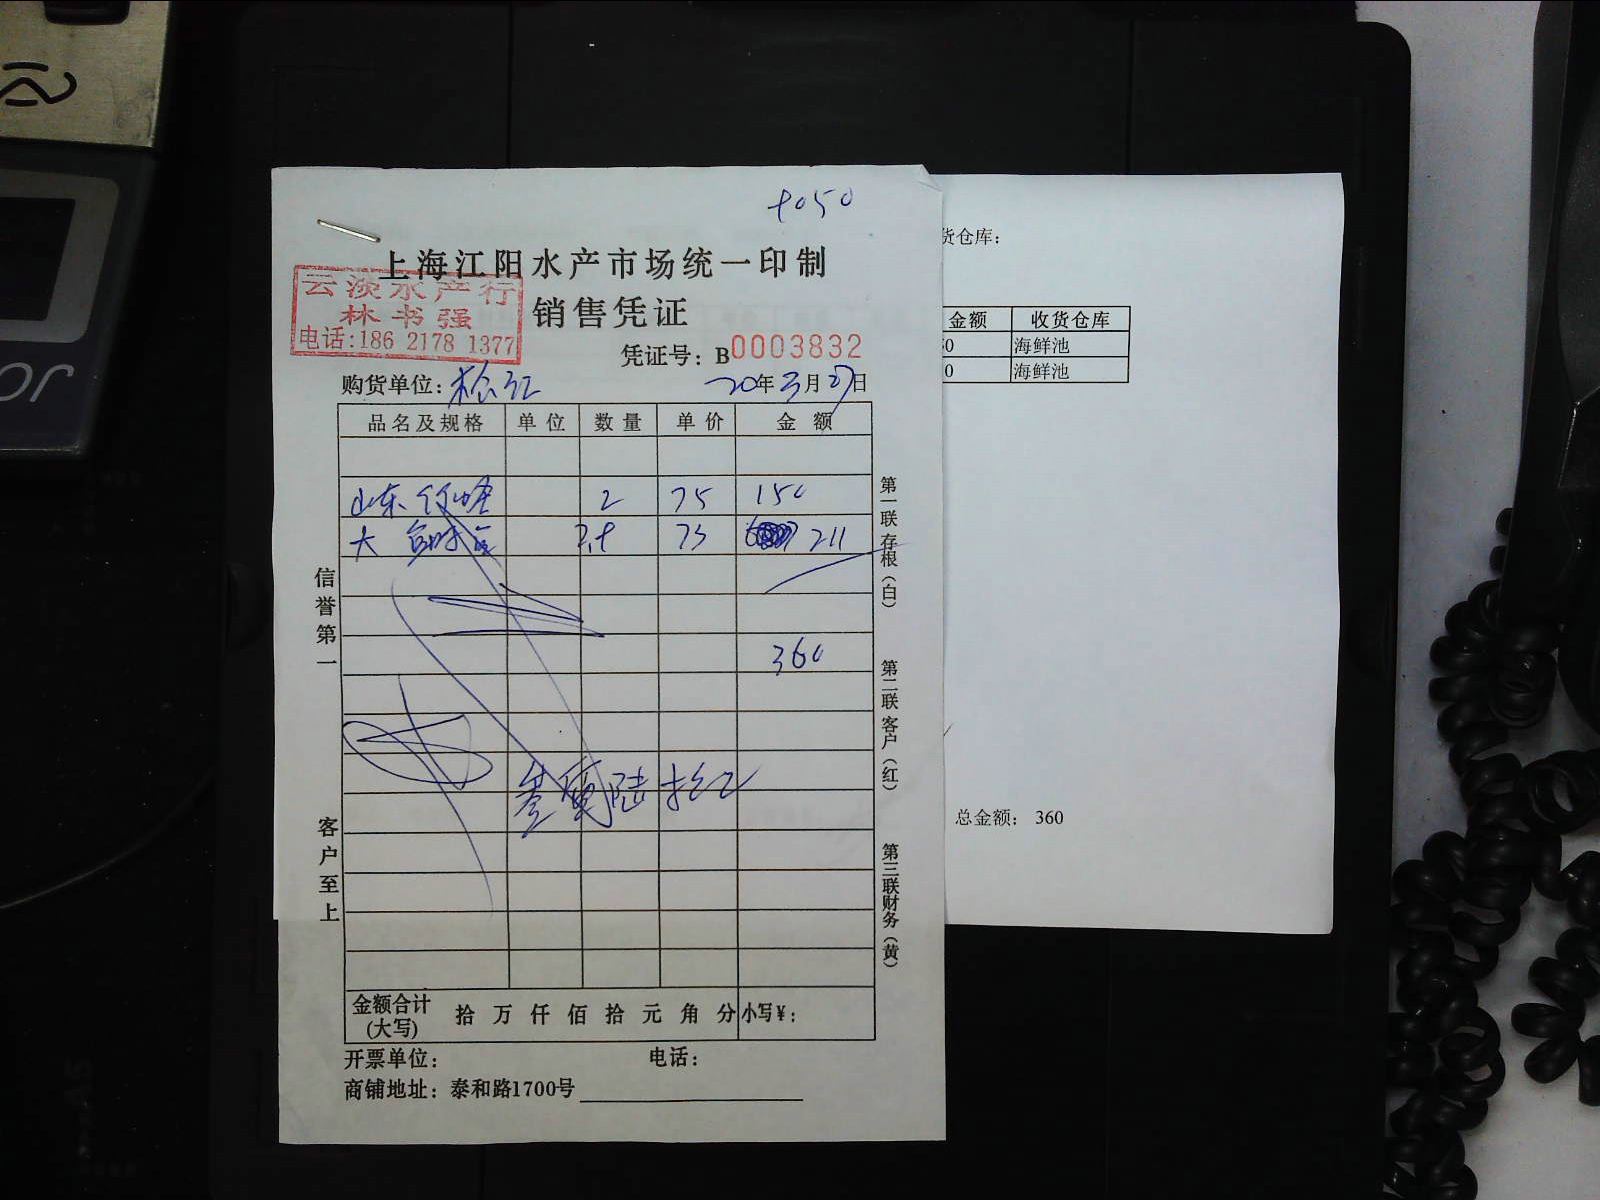 上海江阳水产市场统一印制
云淡水产行
林书强
电话:186 2178 1377
销售凭证
凭证号：B0003832
购货单位：松江
20年3月27日
品名及规格 单位 数量 单价 金额
山东 2 75 150
大 73 211
360
叁佰陆拾元
信誉第一
客户至上
第一联存根（白）
第二联客户（红）
第三联财务（黄）
金额合计(大写) 拾 万 仟 佰 拾 元 角 分 小写¥：
开票单位： 电话：
商铺地址：泰和路1700号
货仓库：
金额 收货仓库
0 海鲜池
0 海鲜池
总金额： 360